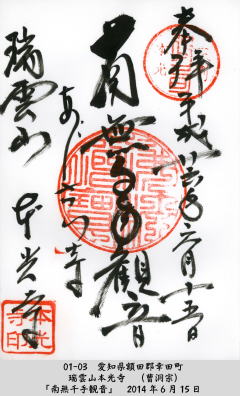 奉拝 平成廿六年六月十五日
南無千手観音
あじさい寺
瑞雲山 本光寺
本光
寺印
01-03 愛知県額田郡幸田町
瑞雲山本光寺 (曹洞宗)
「南無千手観音」 2014年6月15日